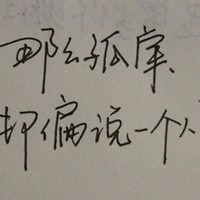 那么孤寂、
却偏说一个人